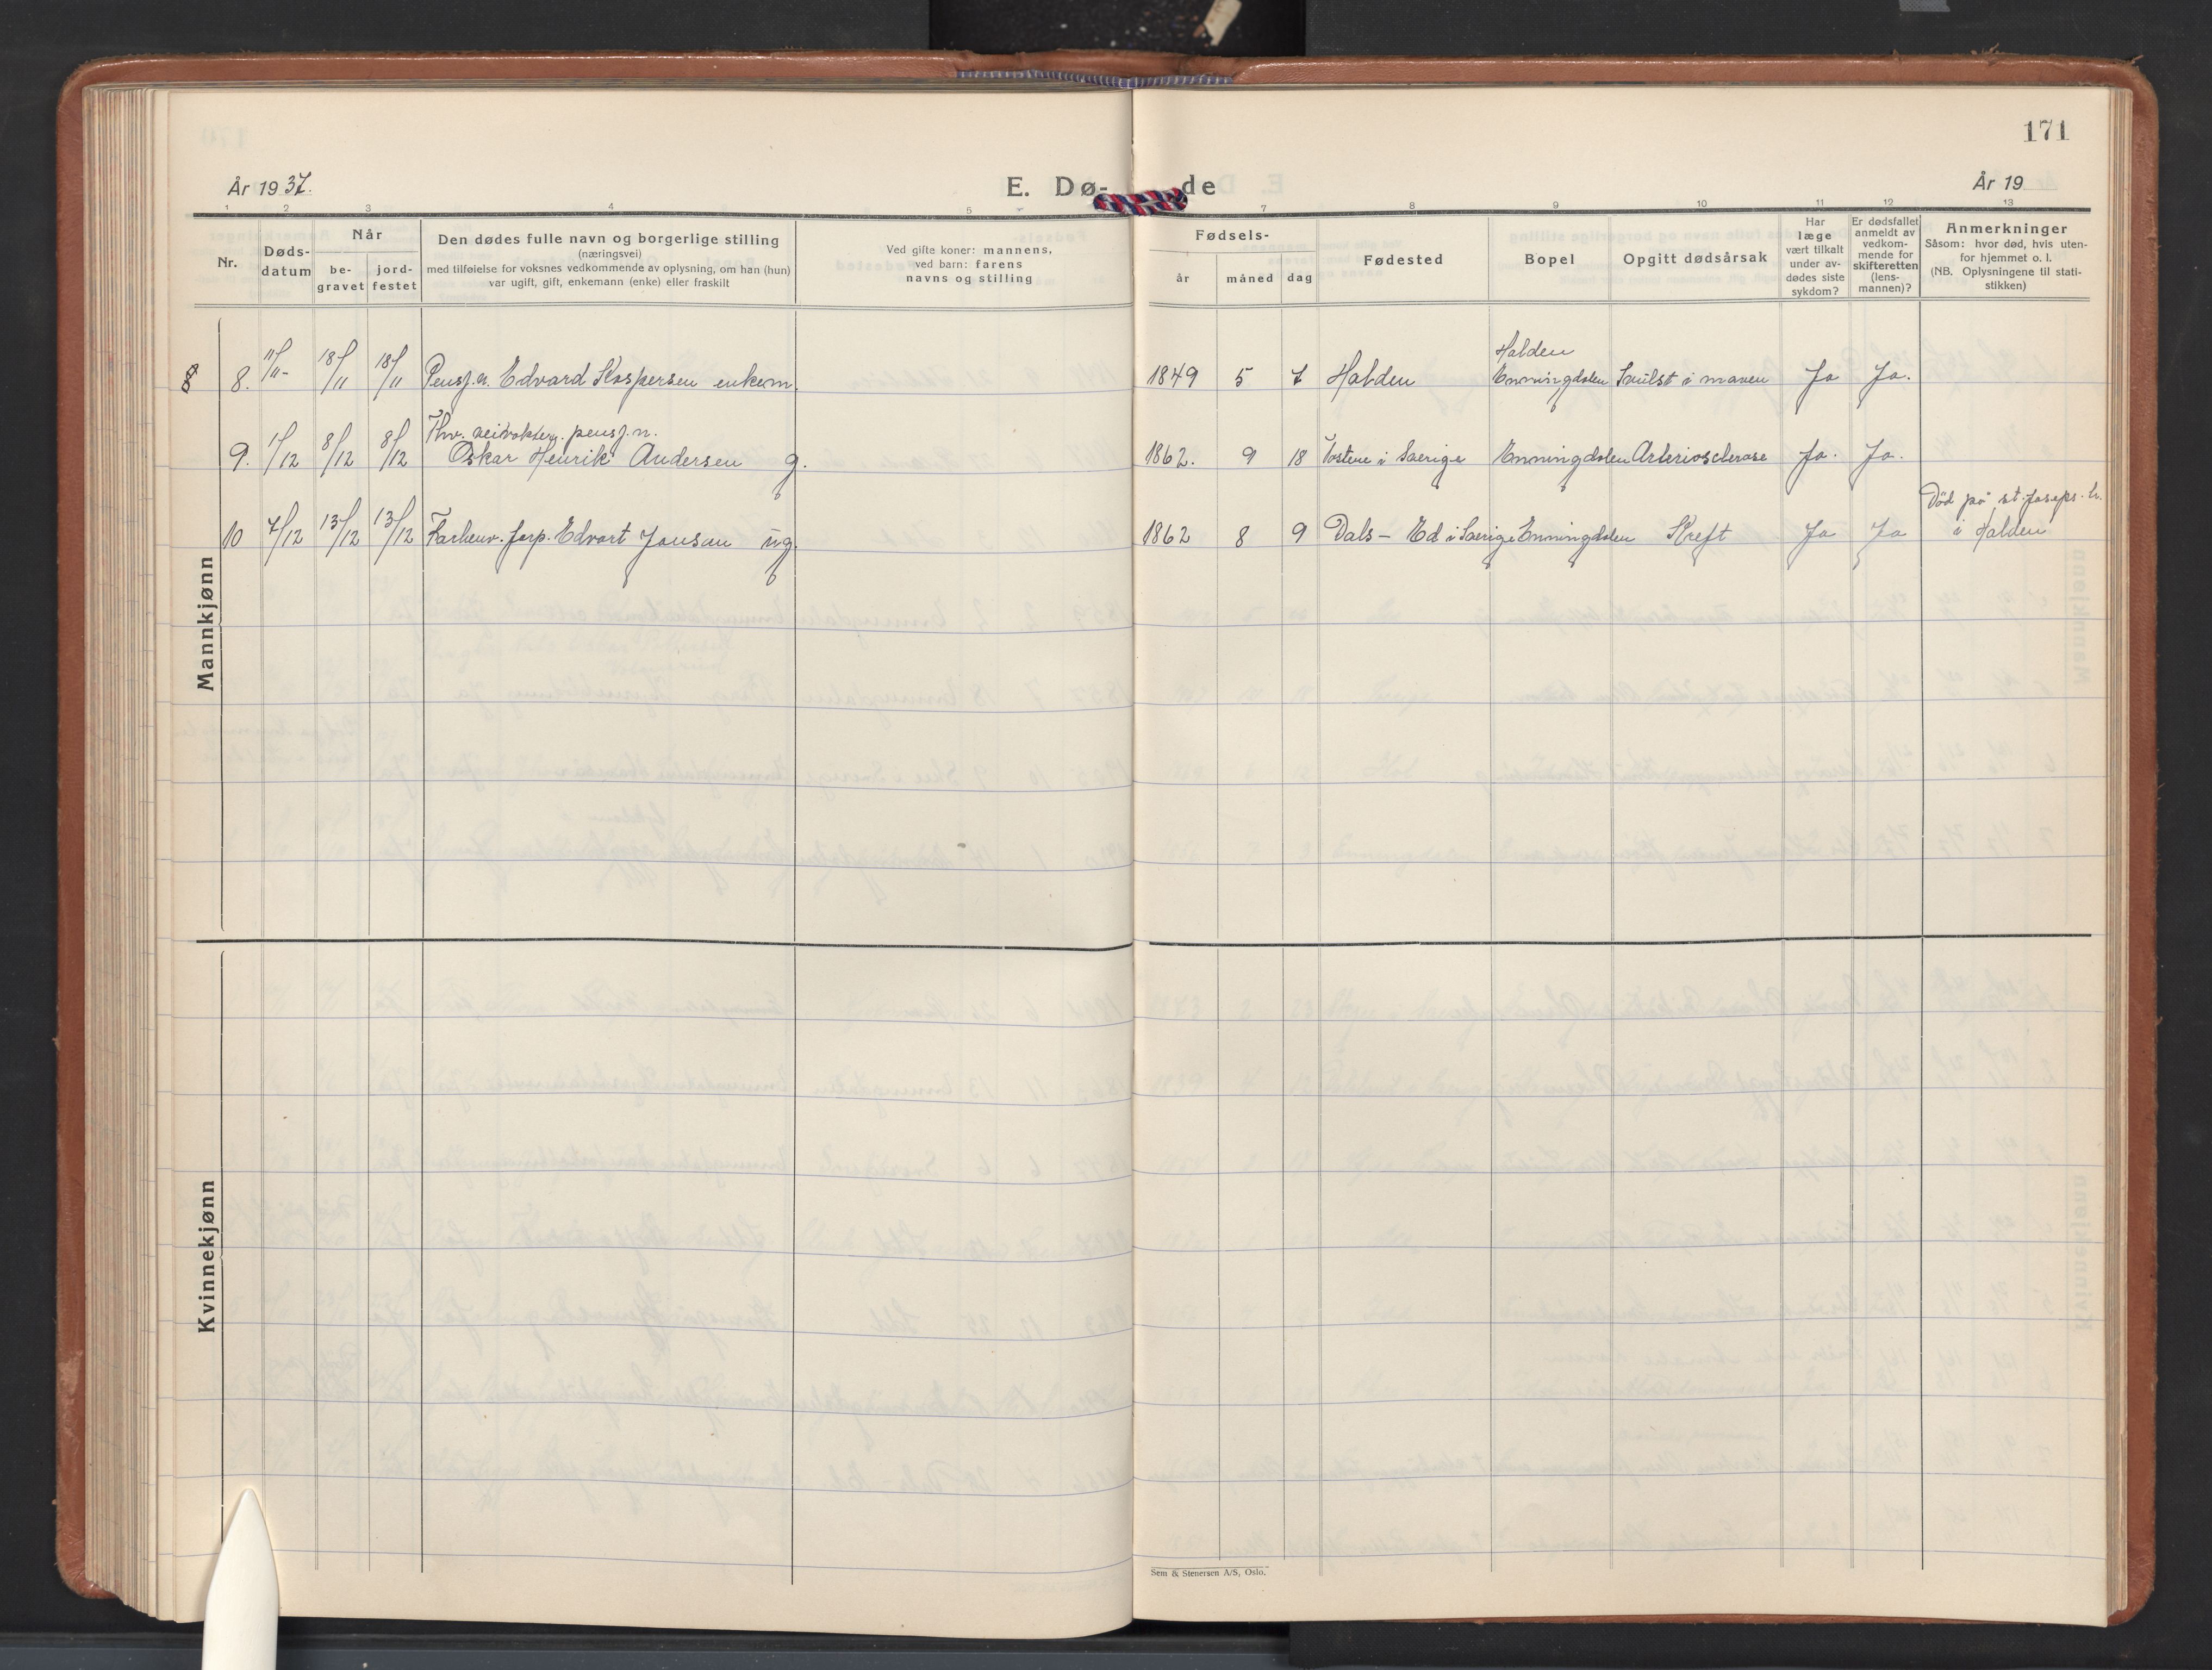 171
År 1937.
E. Dø-
de
År 19
1 2 3 4 5 7 8 9 10 11 12 13
Nr.
Døds-
datum
Når
be-
gravet
jord-
festet
Den dødes fulle navn og borgerlige stilling
(næringsvei)
med tilføielse for voksnes vedkommende av oplysning, om han (hun)
var ugift, gift, enkemann (enke) eller fraskilt
Ved gifte koner: mannens,
ved barn: farens
navns og stilling
Fødsels-
år
måned
dag
Fødested
Bopel
Opgitt dødsårsak
Har
læge
vært tilkalt
under av-
dødes siste
sykdom?
Er dødsfallet
anmeldt av
vedkom-
mende for
skifteretten
(lens-
mannen)?
Anmerkninger
Såsom: hvor død, hvis uten-
for hjemmet o. l.
(NB. Oplysningene til stati-
stikken)
Mankjønn
Halden
8 8. 11/11- 18/11 18/11 Pensj.n. Edvard Kaspersen enkem. 1849 5 7 Halden Enningdalen Svulst i maven Ja Ja.
Fhv. veivokter, pensj.n.
9. 1/12 8/12 8/12 Oskar Henrik Andersen g. 1862. 9 18 i Sverige Enningdalen Arteriosclerose Ja. Ja.
Død på st. Josephs. h.
10 7/12 13/12 13/12 Forhenv. forp. Edvart Jonsan ug. 1862 8 9 Dals-Ed i Sverige Enningdalen Kreft Ja Ja i Halden
Kvinnekjønn
Sem & Stenersen A/S, Oslo.